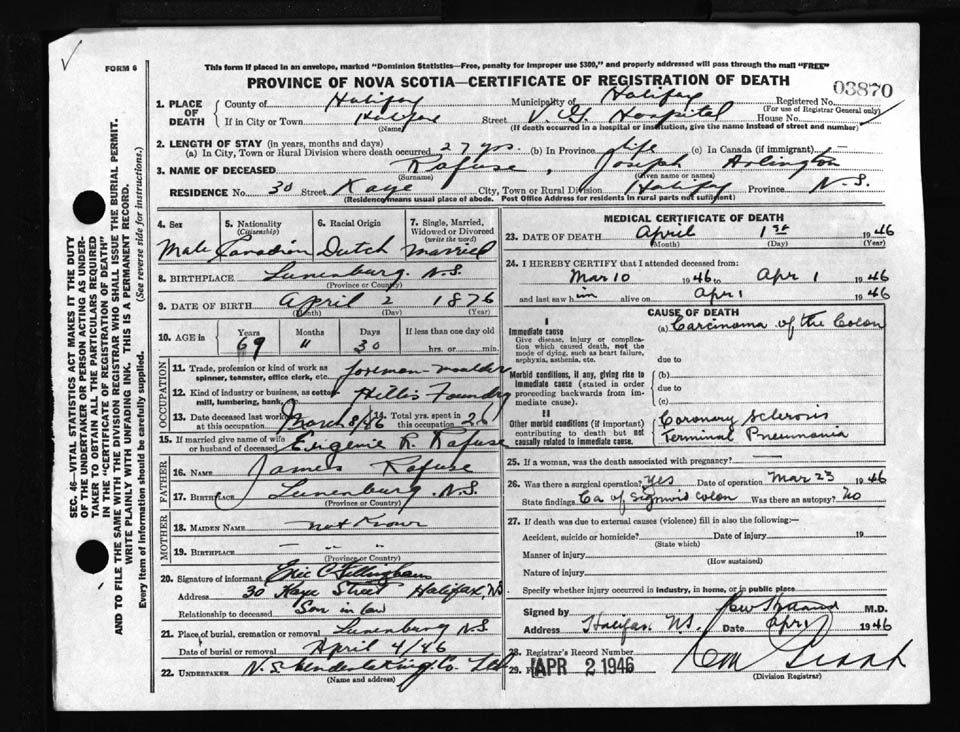 FORM 6
This form if placed in an envelope, marked "Dominion Statistics—Free, penalty for improper use $300," and properly addressed will pass through the mail "FREE"
PROVINCE OF NOVA SCOTIA—CERTIFICATE OF REGISTRATION OF DEATH
03870
1. PLACE OF DEATH County of Halifax Municipality of Halifax Registered No.
(For use of Registrar General only)
If in City or Town Halifax Street V. G. Hospital House No.
(Name) (If death occurred in a hospital or institution, give the name instead of street and number)
2. LENGTH OF STAY (in years, months and days)
(a) In City, Town or Rural Division where death occurred 27 yrs. (b) In Province Life (c) In Canada (if immigrant)
3. NAME OF DECEASED Rafuse, Joseph Arlington
(Surname) (Given name or names)
RESIDENCE No. 30 Street Kaye City, Town or Rural Division Halifax Province N.S.
(Residence means usual place of abode. Post Office Address for residents in rural parts not sufficient)
4. Sex 5. Nationality (Citizenship) 6. Racial Origin 7. Single, Married, Widowed or Divorced (write the word)
Male Canadian Dutch Married
8. BIRTHPLACE Lunenburg. N.S.
(Province or County)
9. DATE OF BIRTH April 2 1876
(Month) (Day) (Year)
10. AGE in Years Months Days If less than one day old
69 11 30 hrs. or min.
OCCUPATION
11. Trade, profession or kind of work as spinner, teamster, office clerk, etc. foreman-moulder
12. Kind of industry or business, as cotton mill, lumbering, bank, etc. Hillis Foundry
13. Date deceased last worked at this occupation March 8/46 14. Total yrs. spent in this occupation 26
15. If married give name of wife or husband of deceased Eugenie R. Rafuse
FATHER
16. NAME James Rafuse
17. BIRTHPLACE Lunenburg. N.S.
(Province or County)
MOTHER
18. MAIDEN NAME not known
19. BIRTHPLACE — " " —
(Province or County)
20. Signature of informant Eric C.
Address 30 Kaye Street Halifax, NS
Relationship to deceased Son in law
21. Place of burial, cremation or removal Lunenburg N.S.
Date of burial or removal April 4/46
22. UNDERTAKER N.S. Undertaking Co. Ltd
(Name and address)
MEDICAL CERTIFICATE OF DEATH
23. DATE OF DEATH April 1st 1946
(Month) (Day) (Year)
24. I HEREBY CERTIFY that I attended deceased from:
Mar 10 1946 to Apr 1 1946
and last saw him alive on Apr 1 1946
CAUSE OF DEATH
I
Immediate cause (a) Carcinoma of the Colon
Give disease, injury or complication which caused death, not the mode of dying, such as heart failure, asphyxia, asthenia, etc.
due to
Morbid conditions, if any, giving rise to immediate cause (stated in order proceeding backwards from immediate cause).
(b)
due to
(c)
II
Other morbid conditions (if important) contributing to death but not causally related to immediate cause.
Coronary Sclerosis
Terminal Pneumonia
25. If a woman, was the death associated with pregnancy? —
26. Was there a surgical operation? Yes Date of operation Mar 23 1946
State findings Ca of Sigmoid colon Was there an autopsy? No
27. If death was due to external causes (violence) fill in also the following:—
Accident, suicide or homicide? Date of injury 19
(State which)
Manner of injury
(How sustained)
Nature of injury
Specify whether injury occurred in industry, in home, or in public place
Signed by M.D.
Address Halifax N.S. Date Apr 1 1946
28. Registrar's Record Number
29. APR 2 1946
(Division Registrar)
SEC. 46—VITAL STATISTICS ACT MAKES IT THE DUTY OF THE UNDERTAKER OR PERSON ACTING AS UNDERTAKER TO OBTAIN ALL THE PARTICULARS REQUIRED IN THE "CERTIFICATE OF REGISTRATION OF DEATH" AND TO FILE THE SAME WITH THE DIVISION REGISTRAR WHO SHALL ISSUE THE BURIAL PERMIT.
WRITE PLAINLY WITH UNFADING INK. THIS IS A PERMANENT RECORD.
Every item of information should be carefully supplied. (See reverse side for instructions.)